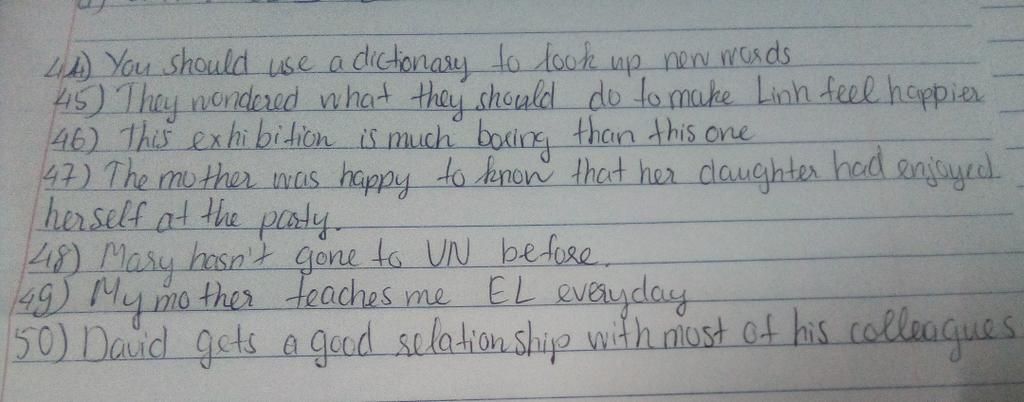 44) You should use a dictionary to look up new words
45) They wondered what they should do to make Linh feel happier
46) This exhibition is much boring than this one
47) The mother was happy to know that her daughter had enjoyed
herself at the party.
48) Mary hasn't gone to VN before.
49) My mother teaches me EL everyday
50) David gets a good relationship with most of his colleagues